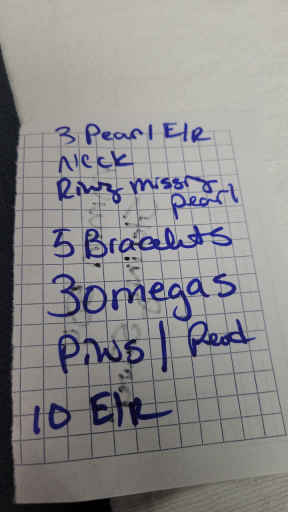 3 Pearl E/R
Neck
Ring missing
pearl
5 Bracelets
3 omegas
Pins |
10 E/R